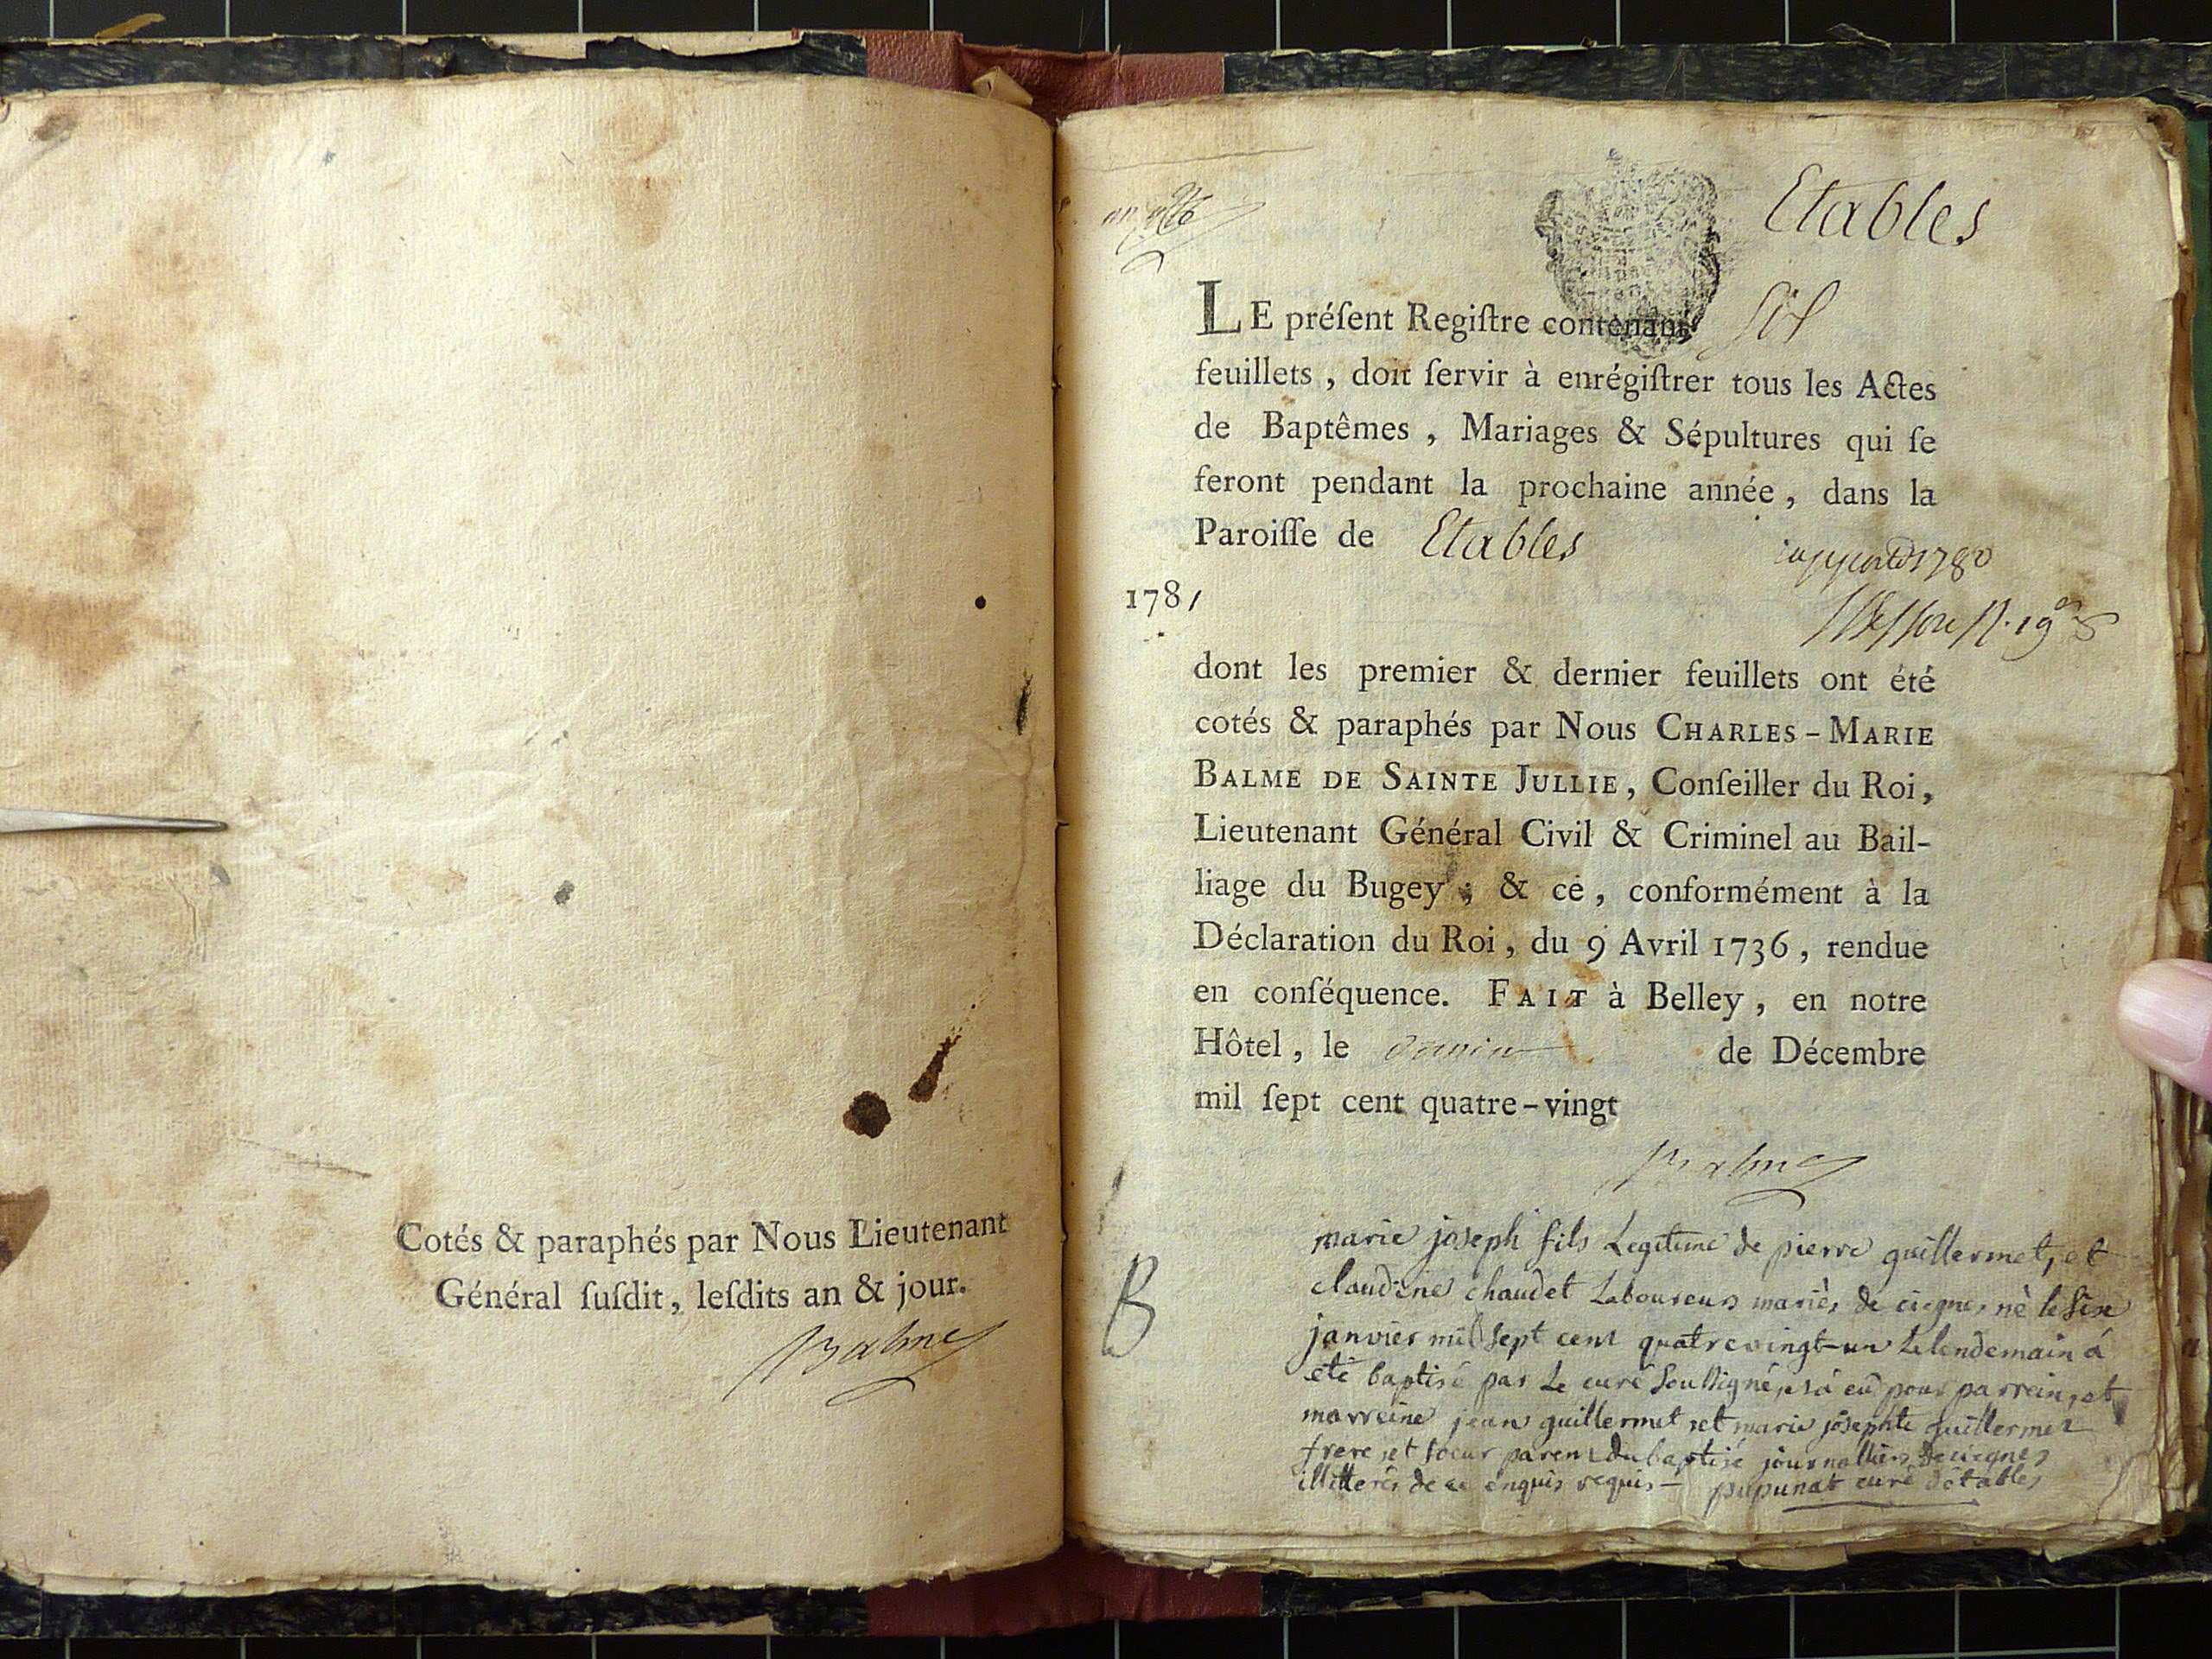 Cotés & paraphés par Nous Lieutenant
Général ſuſdit, leſdits an & jour.
Balme
Etables
LE préſent Regiſtre contenant six
feuillets, doit ſervir à enrégiſtrer tous les Actes
de Baptêmes, Mariages & Sépultures qui ſe
feront pendant la prochaine année, dans la
Paroiſſe de Etables
1781
dont les premier & dernier feuillets ont été
cotés & paraphés par Nous CHARLES-MARIE
BALME DE SAINTE JULLIE, Conſeiller du Roi,
Lieutenant Général Civil & Criminel au Bail-
liage du Bugey; & ce, conformément à la
Déclaration du Roi, du 9 Avril 1736, rendue
en conſéquence. FAIT à Belley, en notre
Hôtel, le de Décembre
mil ſept cent quatre-vingt
Balme
B
marie joseph fils Legitime de pierre guillermet, et
claudine chaudet Laboureurs mariés de ciegnes né le six
janvier mil sept cent quatre vingt-un Le lendemain à
été baptisé par Le curé soussigné, et à eu pour parrein, et
marreine jean guillermet et marie josephte guillermet
frere et soeur parens du baptisé journalliers de ciegnes
illitterés de ce enquis requis - pupunat curé d'étables